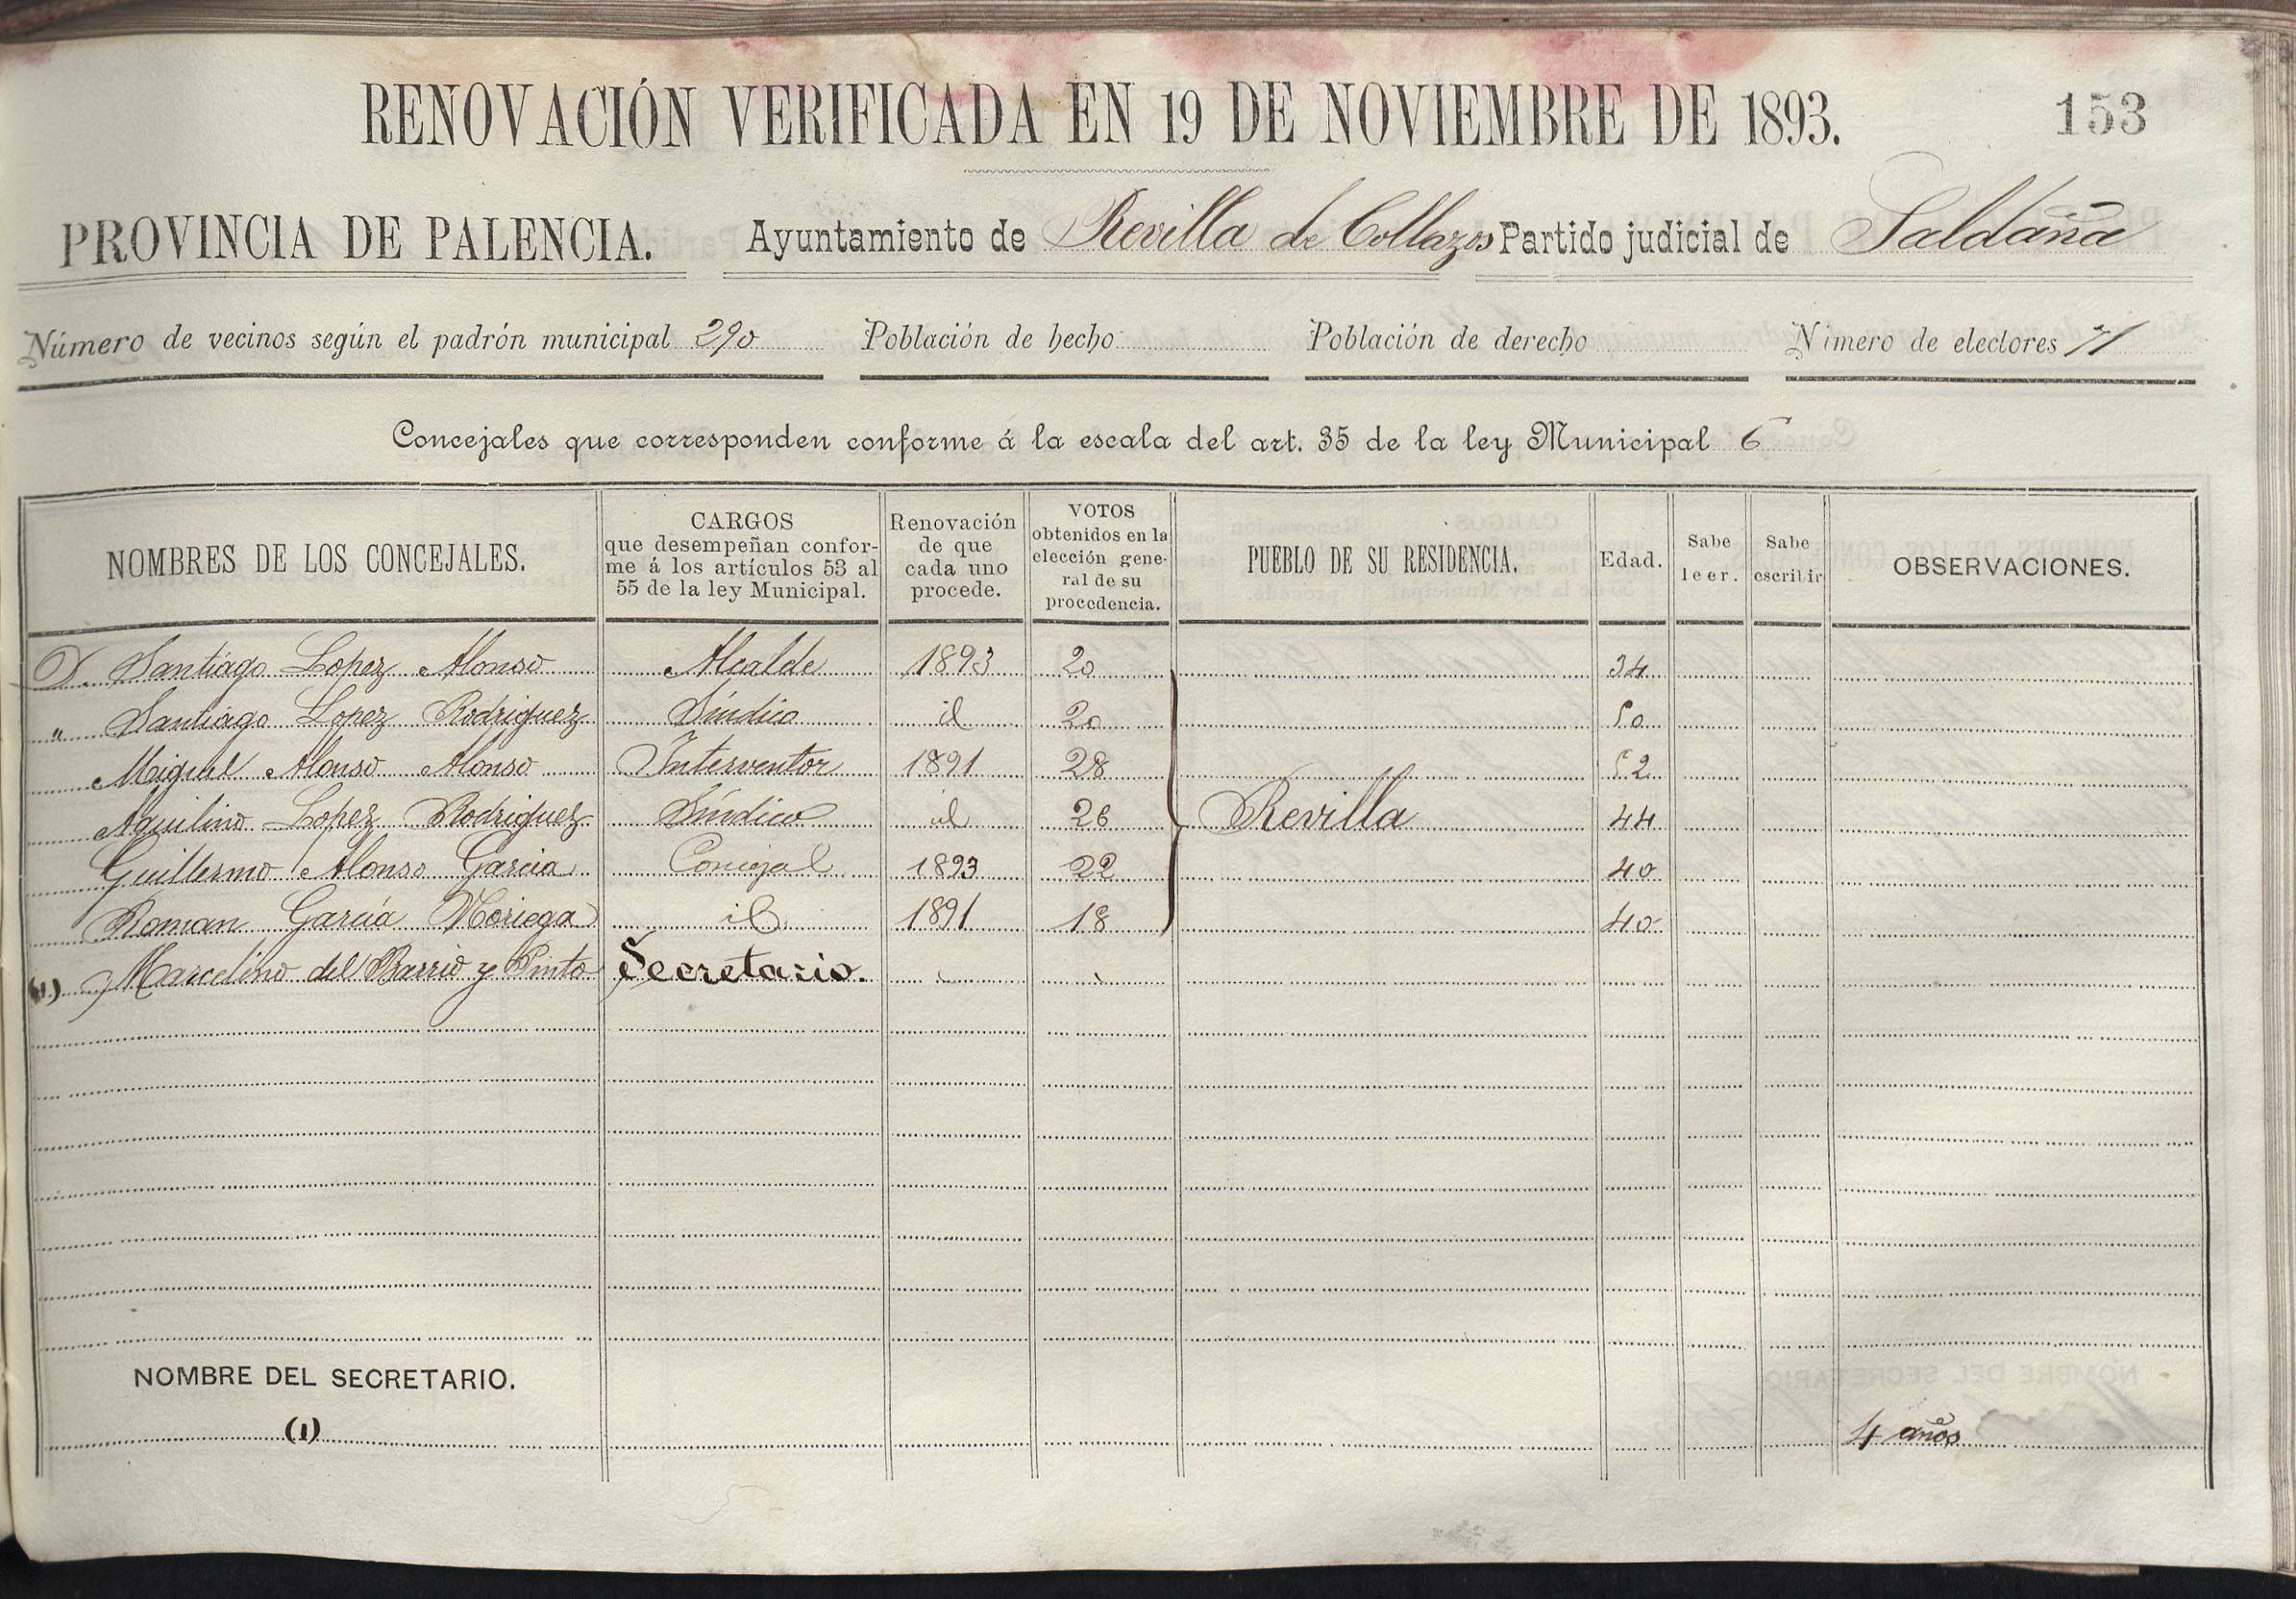 RENOVACIÓN VERIFICADA EN 19 DE NOVIEMBRE DE 1893. 153
PROVINCIA DE PALENCIA. Ayuntamiento de Revilla de Collazos Partido judicial de Saldaña
Número de vecinos según el padrón municipal 290 Población de hecho Población de derecho Número de electores 71
Concejales que corresponden conforme á la escala del art. 35 de la ley Municipal 6
NOMBRES DE LOS CONCEJALES.
CARGOS
que desempeñan confor-
me á los artículos 53 al
55 de la ley Municipal.
Renovación
de que
cada uno
procede.
VOTOS
obtenidos en la
elección gene-
ral de su
procedencia.
PUEBLO DE SU RESIDENCIA.
Edad.
Sabe
leer.
Sabe
escribir
OBSERVACIONES.
D. Santiago Lopez Alonso Alcalde 1893 20 34
" Santiago Lopez Rodriguez Síndico id 20 50
Miguel Alonso Alonso Interventor 1891 28 52
Aquilino Lopez Rodriguez Síndico id 26 Revilla 44
Guillermo Alonso Garcia Concejal 1893 22 40
Roman García Noriega id 1891 18 40
(1) Marcelino del Barrio y Pinto Secretario.
NOMBRE DEL SECRETARIO.
(1) 4 años